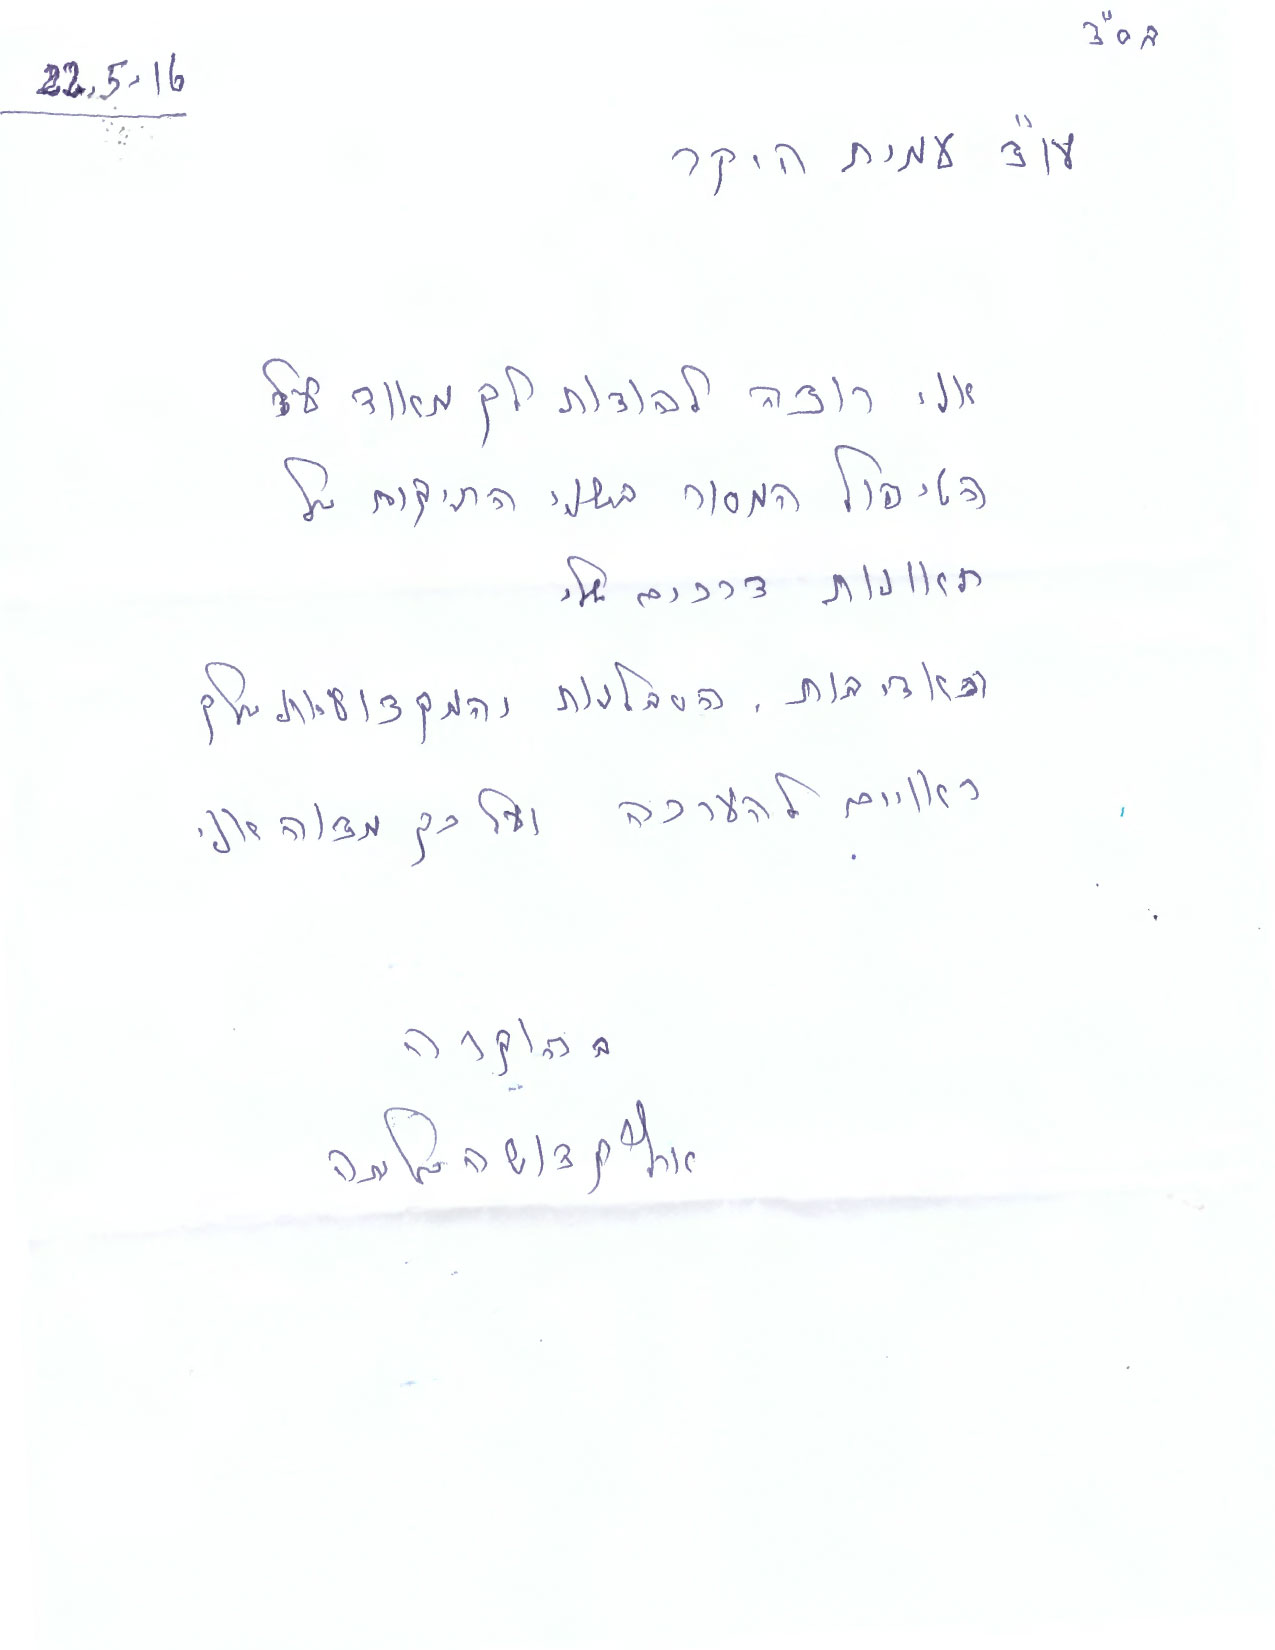 בס"ד
22.5.16
עו"ד עמית היקר
אני רוצה להודות לך מאוד על
הטיפול המסור בשני התיקים של
תאונות דרכים שלי
האדיבות, הסבלנות והמקצועיות שלך
ראויים להערכה ועל כך מודה אני
בהוקרה
קדושה